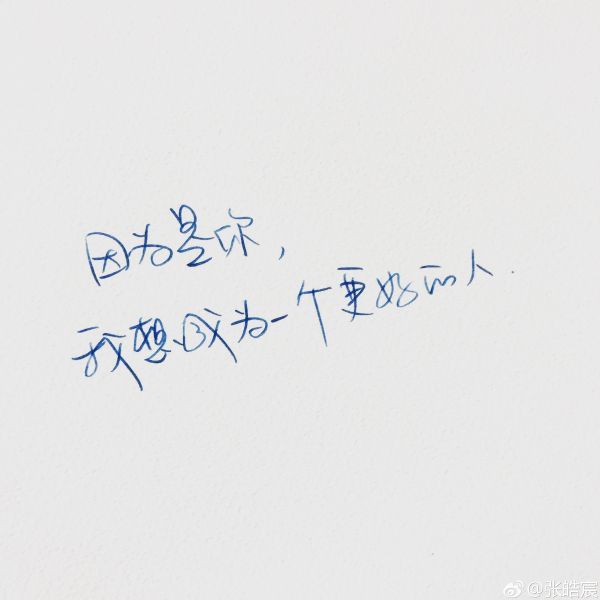 因为是你,
我想成为一个更好的人.
@张皓宸